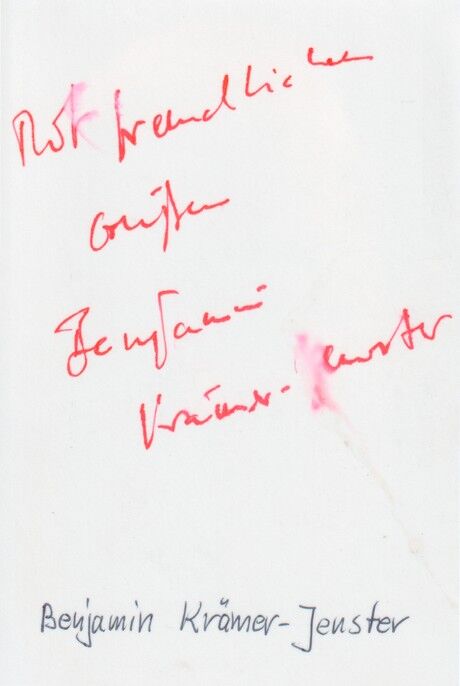 Mit freundlichen
Grüßen
Benjamin
Krämer-Jenster
Benjamin Krämer-Jenster